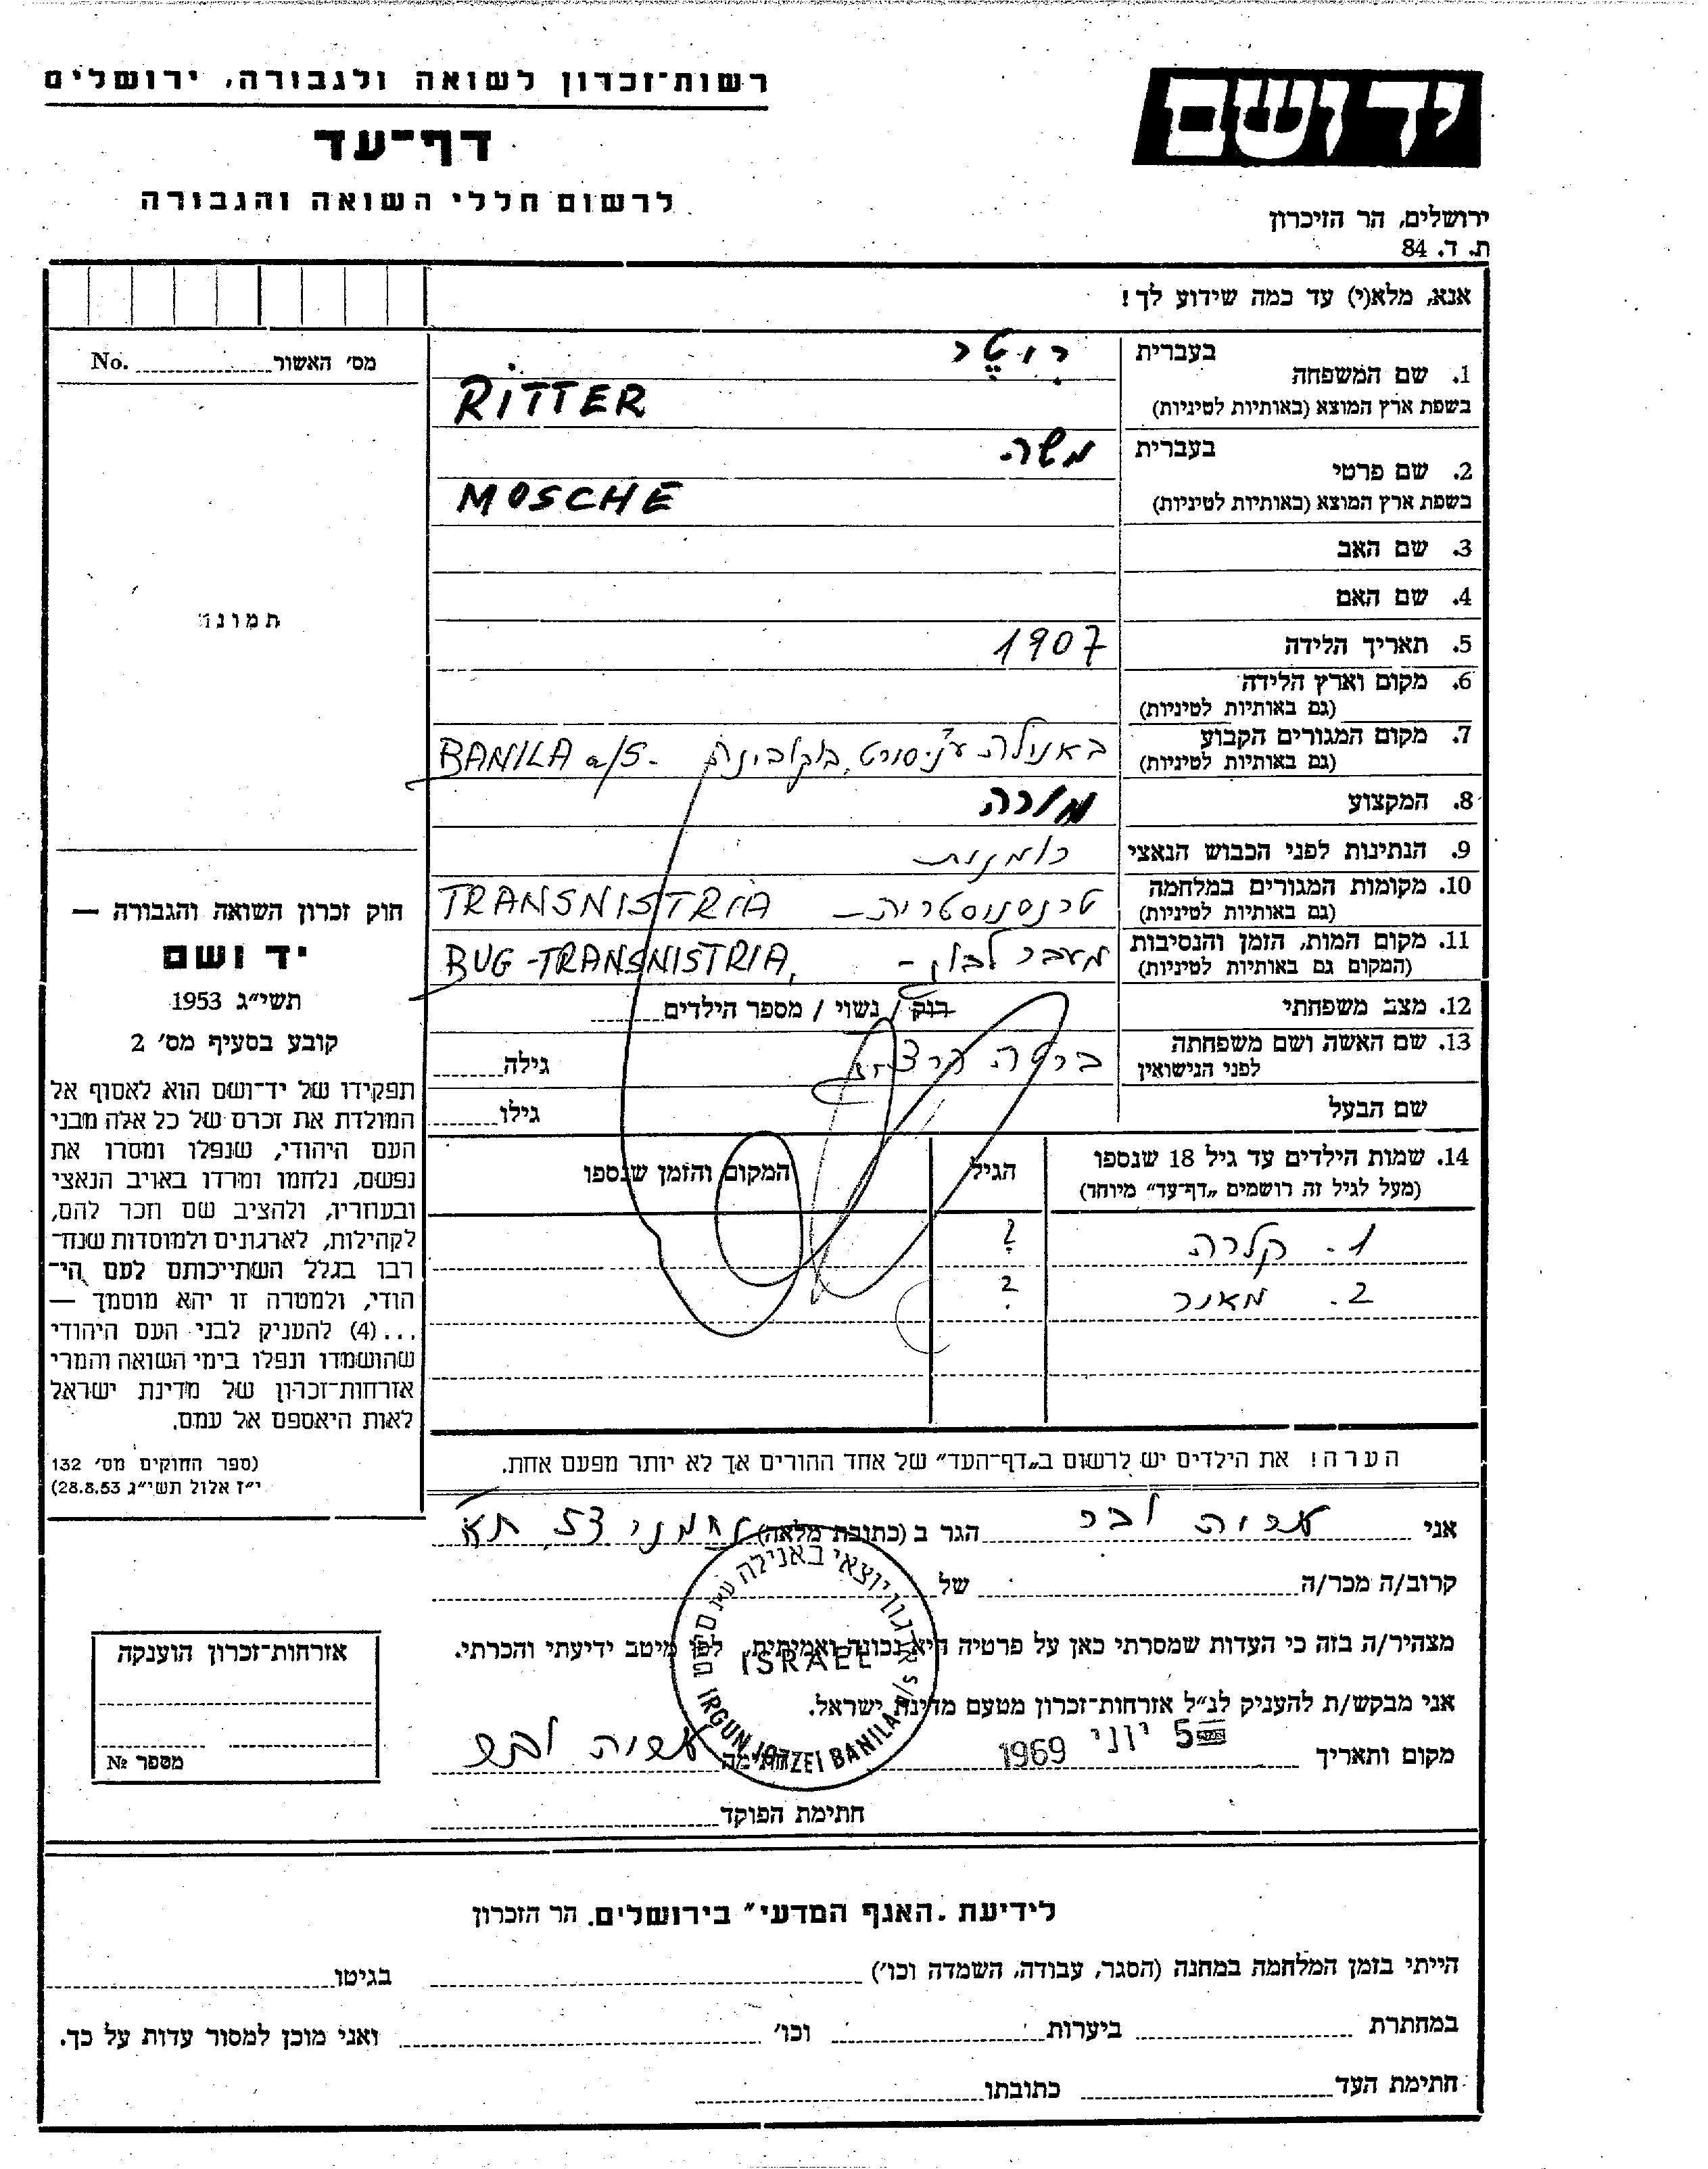 רשות־זכרון לשואה ולגבורה, ירושלים
דף־עד
לרשום חללי השואה והגבורה
יד ושם
ירושלים, הר הזיכרון
ת. ד. 84
אנא, מלא(י) עד כמה שידוע לך!
מס׳ האשור No.
תמונה
1. שם המשפחה
בעברית ריטר
בשפת ארץ המוצא (באותיות לטיניות) RITTER
2. שם פרטי
בעברית משה
בשפת ארץ המוצא (באותיות לטיניות) MOSCHE
3. שם האב
4. שם האם
5. תאריך הלידה 1907
6. מקום וארץ הלידה
(גם באותיות לטיניות)
7. מקום המגורים הקבוע באנילה סירט, בוקובינה BANILA a/S.
(גם באותיות לטיניות)
8. המקצוע מורה
9. הנתינות לפני הכבוש הנאצי רומנית
10. מקומות המגורים במלחמה טרנסניסטריה TRANSNISTRIA
(גם באותיות לטיניות)
11. מקום המות, הזמן והנסיבות מעבר לבוג - BUG-TRANSNISTRIA,
(המקום גם באותיות לטיניות)
12. מצב משפחתי רוק / נשוי / מספר הילדים
13. שם האשה ושם משפחתה ברטה גילה
לפני הנישואין
שם הבעל גילו
14. שמות הילדים עד גיל 18 שנספו הגיל המקום והזמן שנספו
(מעל לגיל זה רושמים „דף־עד״ מיוחד)
1. קלרה ?
2. מאנר ?
הערה! את הילדים יש לרשום ב„דף־העד״ של אחד ההורים אך לא יותר מפעם אחת.
חוק זכרון השואה והגבורה —
יד ושם
תשי״ג 1953
קובע בסעיף מס׳ 2
תפקידו של יד־ושם הוא לאסוף אל
המולדת את זכרם של כל אלה מבני
העם היהודי, שנפלו ומסרו את
נפשם, נלחמו ומרדו באויב הנאצי
ובעוזריו, ולהציב שם וזכר להם,
לקהילות, לארגונים ולמוסדות שנח־
רבו בגלל השתייכותם לעם הי־
הודי, ולמטרה זו יהא מוסמך —
...(4) להעניק לבני העם היהודי
שהושמדו ונפלו בימי השואה והמרי
אזרחות־זכרון של מדינת ישראל
לאות היאספם אל עמם.
(ספר החוקים מס׳ 132
י״ז אלול תשי״ג 28.8.53)
אני הגר ב (כתובת מלאה) נחמני 53, תא
קרוב/ה מכר/ה של
מצהיר/ה בזה כי העדות שמסרתי כאן על פרטיה היא נכונה ואמיתית, לפי מיטב ידיעתי והכרתי.
אני מבקש/ת להעניק לנ״ל אזרחות־זכרון מטעם מדינת ישראל.
מקום ותאריך 5 יוני 1969 חתימה
ארגון יוצאי באנילה
ISRAEL
IRGUN JOTZEI BANILA a/S
חתימת הפוקד
אזרחות־זכרון הוענקה
מספר №
לידיעת „האגף המדעי״ בירושלים. הר הזכרון
הייתי בזמן המלחמה במחנה (הסגר, עבודה, השמדה וכו׳) בגיטו
במחתרת ביערות וכו׳ ואני מוכן למסור עדות על כך.
חתימת העד כתובתו